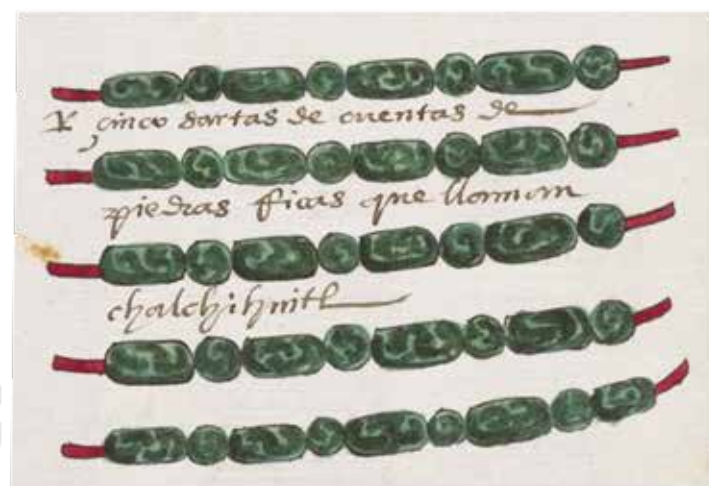 Y cinco sartas de cuentas de
piedras ficas que llaman
chalchihuitl